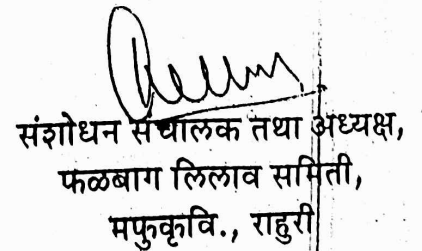 संशोधन संचालक तथा अध्यक्ष,
फळबाग लिलाव समिती,
मफुकृवि., राहुरी